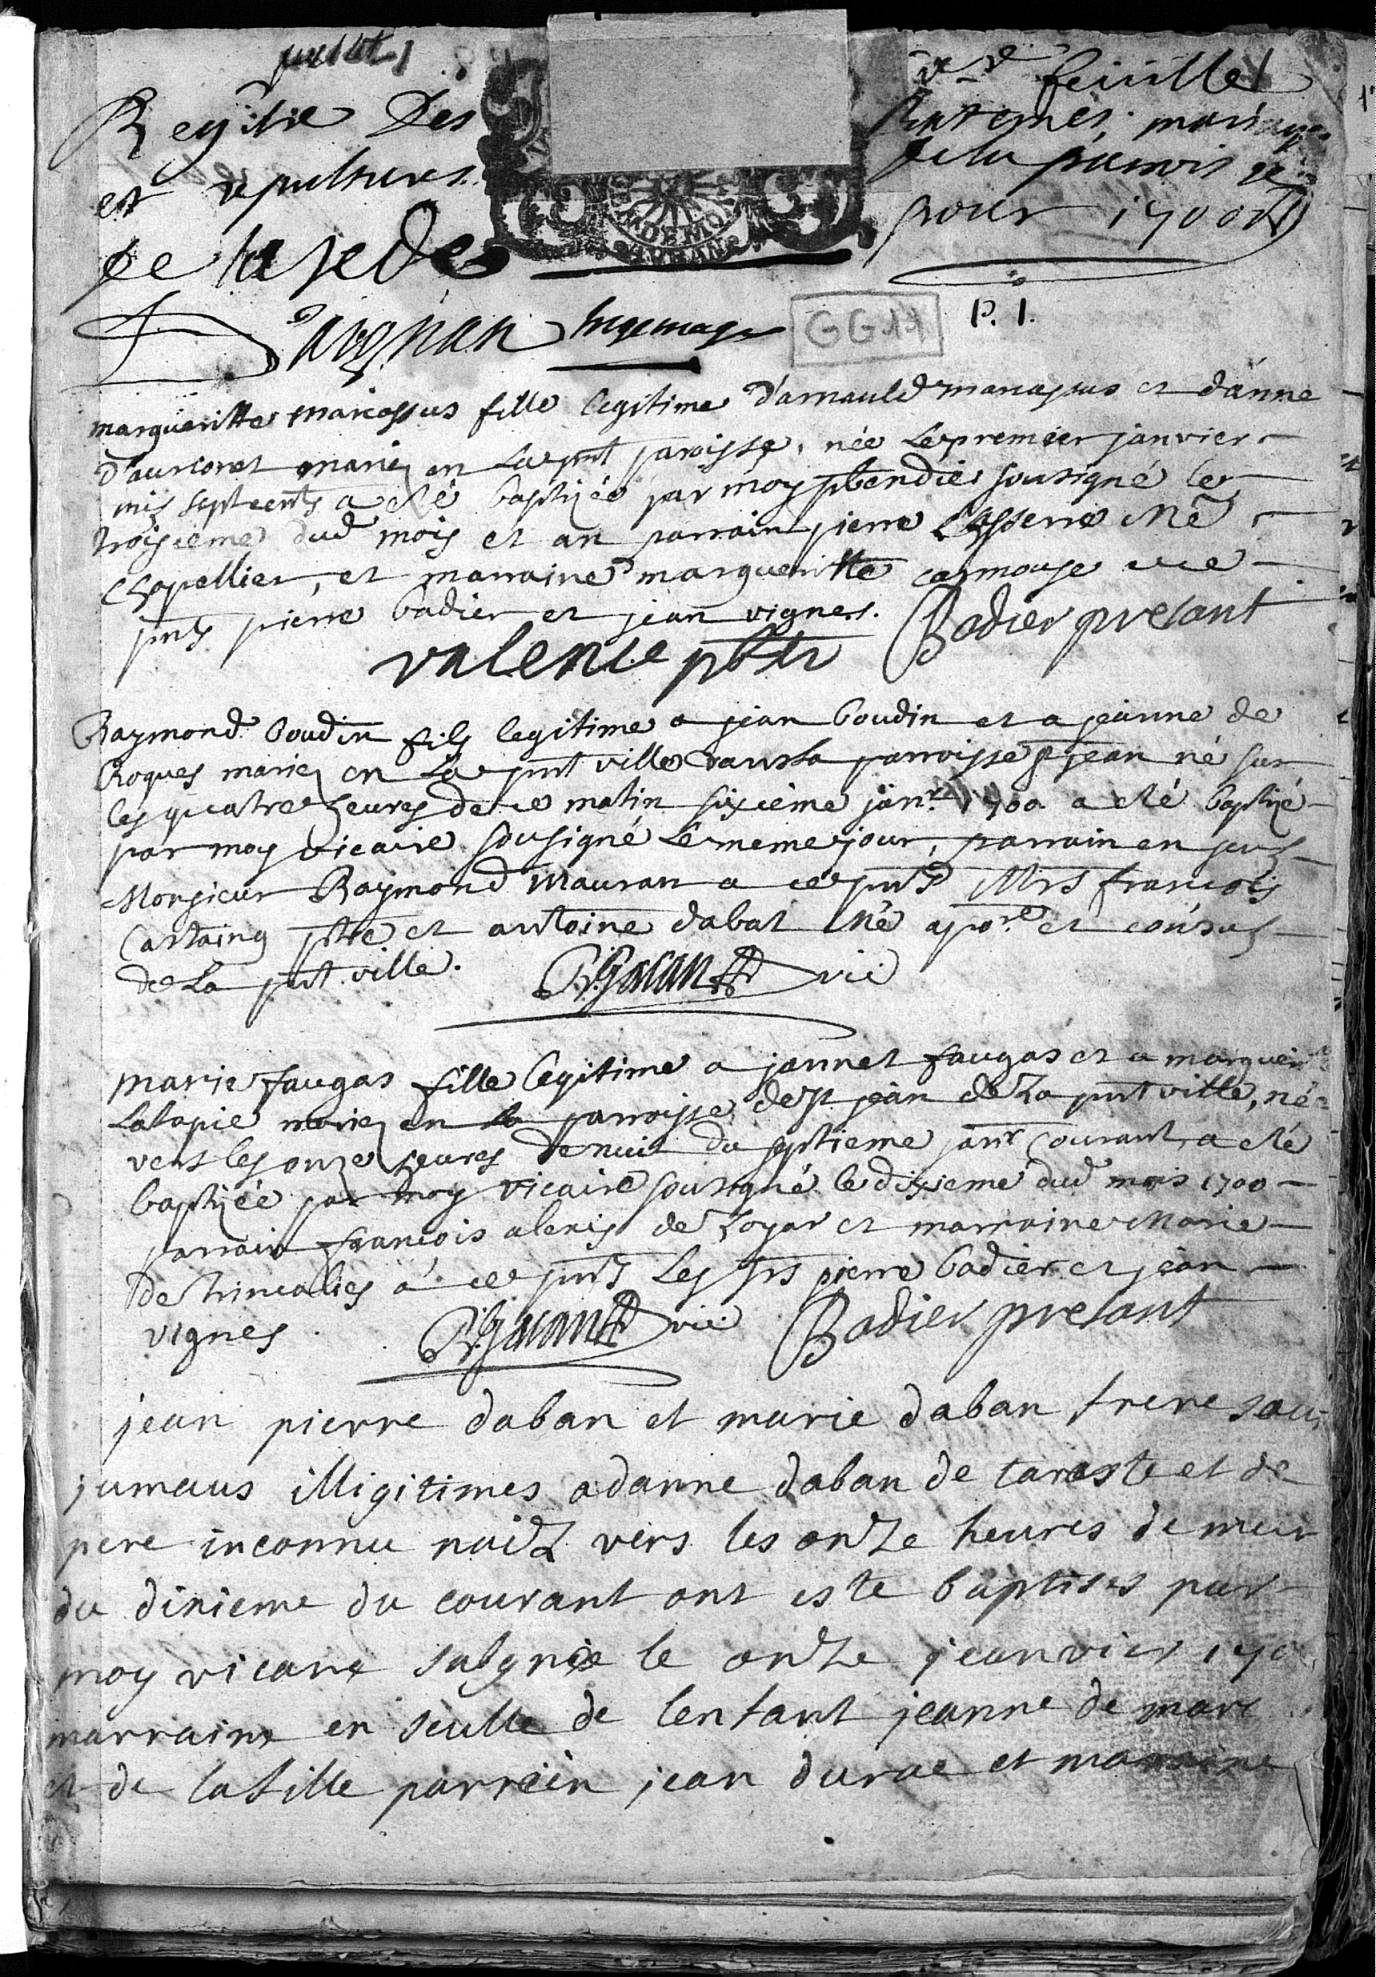 feuille
Registre Des Batemes, mariages
et sepultures de la parroisse
de la sede pour 1700
P. 1.
GG 17
margueritte marcassus fille legitime d'arnauld marcassus et d'anne
mariez en la pnt paroisse, née le premier janvier
mil sept cents a eté baptizée par moy pbendier sousigné le
troisieme dud mois et an parrain pierre Lasserre Me
chapellier, et marraine margueritte carmouse a ce
pnts pierre badier et jean vignes. Badier presant
valence pbtr
Raymond boudin fils legitime a jean boudin et a jeanne de
Roques mariez en la pnt ville dans la parroisse st jean né sur
les quatre heures de ce matin sixcieme janr 1700 a eté baptizé
par moy vicaire sousigné le meme jour, parrain en seul
Monsieur Raymond Mauran a ce pnts Mrs francois
Castaing ptre et antoine dabat Me apore et consul
de la pnt ville. vic
marie faugas fille legitime a jannet faugas et a marguerite
Lalapie mariez en la parroisse de st jean de la pnt ville, née
vers les onze heures de nuit du septieme janr courant, a eté
baptizée par moy vicaire sousigné le dixieme dud mois 1700
parrain francois alexis de Loyar et marraine Marie
de Trincalies a ce pnts les srs pierre badier et jean
vignes vic Badier presant
jean pierre daban et marie daban frere saur
jumeaus illigitimes a danne daban de taraste et de
pere inconnu naidz vers les onze heures de nuit
du dixieme du courant ont este baptises par
moy vicare subsigne le onze jeanvier 170
marraine en seulle de lenfant jeanne de marc
et de la fille parrein jean durac et marraine